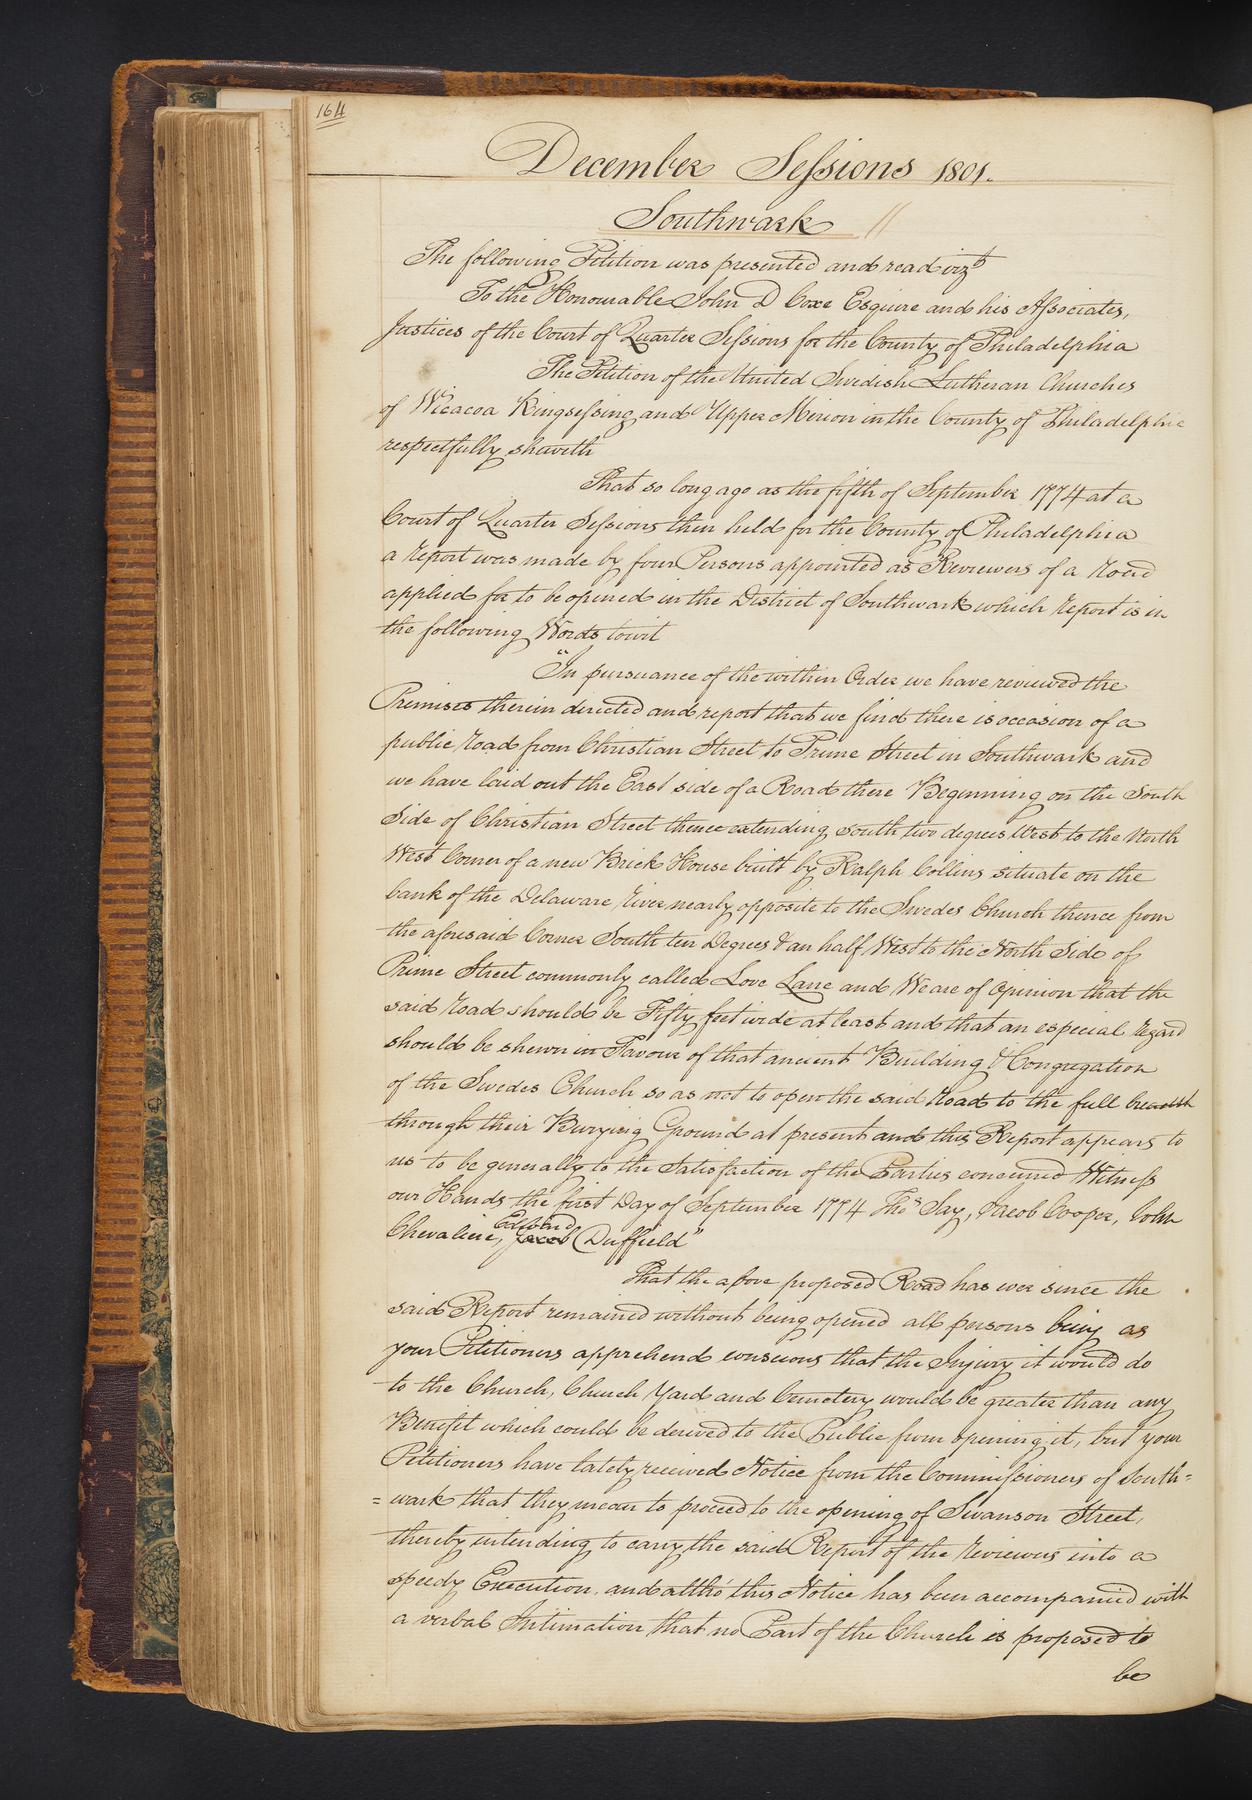 164
December Sessions 1801.
Southwark //
The following Petition was presented and read vizt
To the Honourable John D Coxe Esquire and his Associates,
Justices of the Court of Quarter Sessions for the County of Philadelphia
The Petition of the United Swedish Lutheran Churches
of Wicacoa Kingsessing and Upper Merion in the County of Philadelphia
respectfully sheweth
That so long ago as the fifth of September 1774 at a
Court of Quarter Sessions then held for the County of Philadelphia
a report was made by four Persons appointed as Reviewers of a Road
applied for to be opened in the District of Southwark which report is in
the following Words towit
"In pursuance of the within Order we have reviewed the
Premises therein directed and report that we find there is occasion of a
public road from Christian Street to Prime Street in Southwark and
we have laid out the East side of a Road there Beginning on the South
Side of Christian Street thence extending South two degrees West to the North
West Corner of a new Brick House built by Ralph Collins situate on the
bank of the Delaware river nearly opposite to the Swedes Church thence from
the aforesaid Corner South ten Degrees & an half West to the North Side of
Prime Street commonly called Love Lane and We are of opinion that the
said road should be Fifty feet wide at least and that an especial regard
should be shewn in Favour of that ancient Building & Congregation
of the Swedes Church so as not to open the said road to the full breadth
through their Burying Ground at present and this Report appears to
us to be generally to the Satisfaction of the Parties concerned Witness
our Hands the first Day of September 1774 Thos Say, Jacob Cooper, John
Chevaliere, Edward Jacob Duffield"
That the above proposed Road has ever since the
said Report remained without being opened all persons being as
your Petitioners apprehend conscious that the Injury it would do
to the Church, Church Yard and Cemetery would be greater than any
Benefit which could be derived to the Public from opening it, but your
Petitioners have lately received Notice from the Commissioners of South=
=wark that they mean to proceed to the opening of Swanson Street,
thereby intending to carry the said Report of the reviewers into a
speedy Execution, and altho' this Notice has been accompanied with
a verbal Intimation that no Part of the Church is proposed to
be